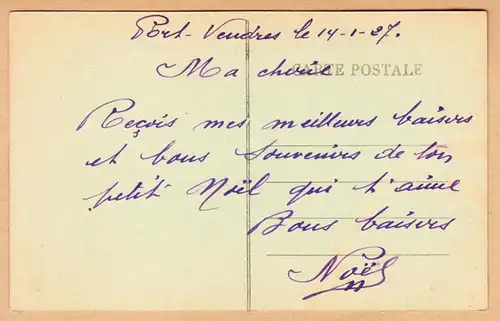 Port-Vendres le 14-1-27.
Ma chérie
CARTE POSTALE
Reçois mes meilleurs baisers
et bons souvenirs de ton
petit Noël qui t'aime
Bons baisers
Noël